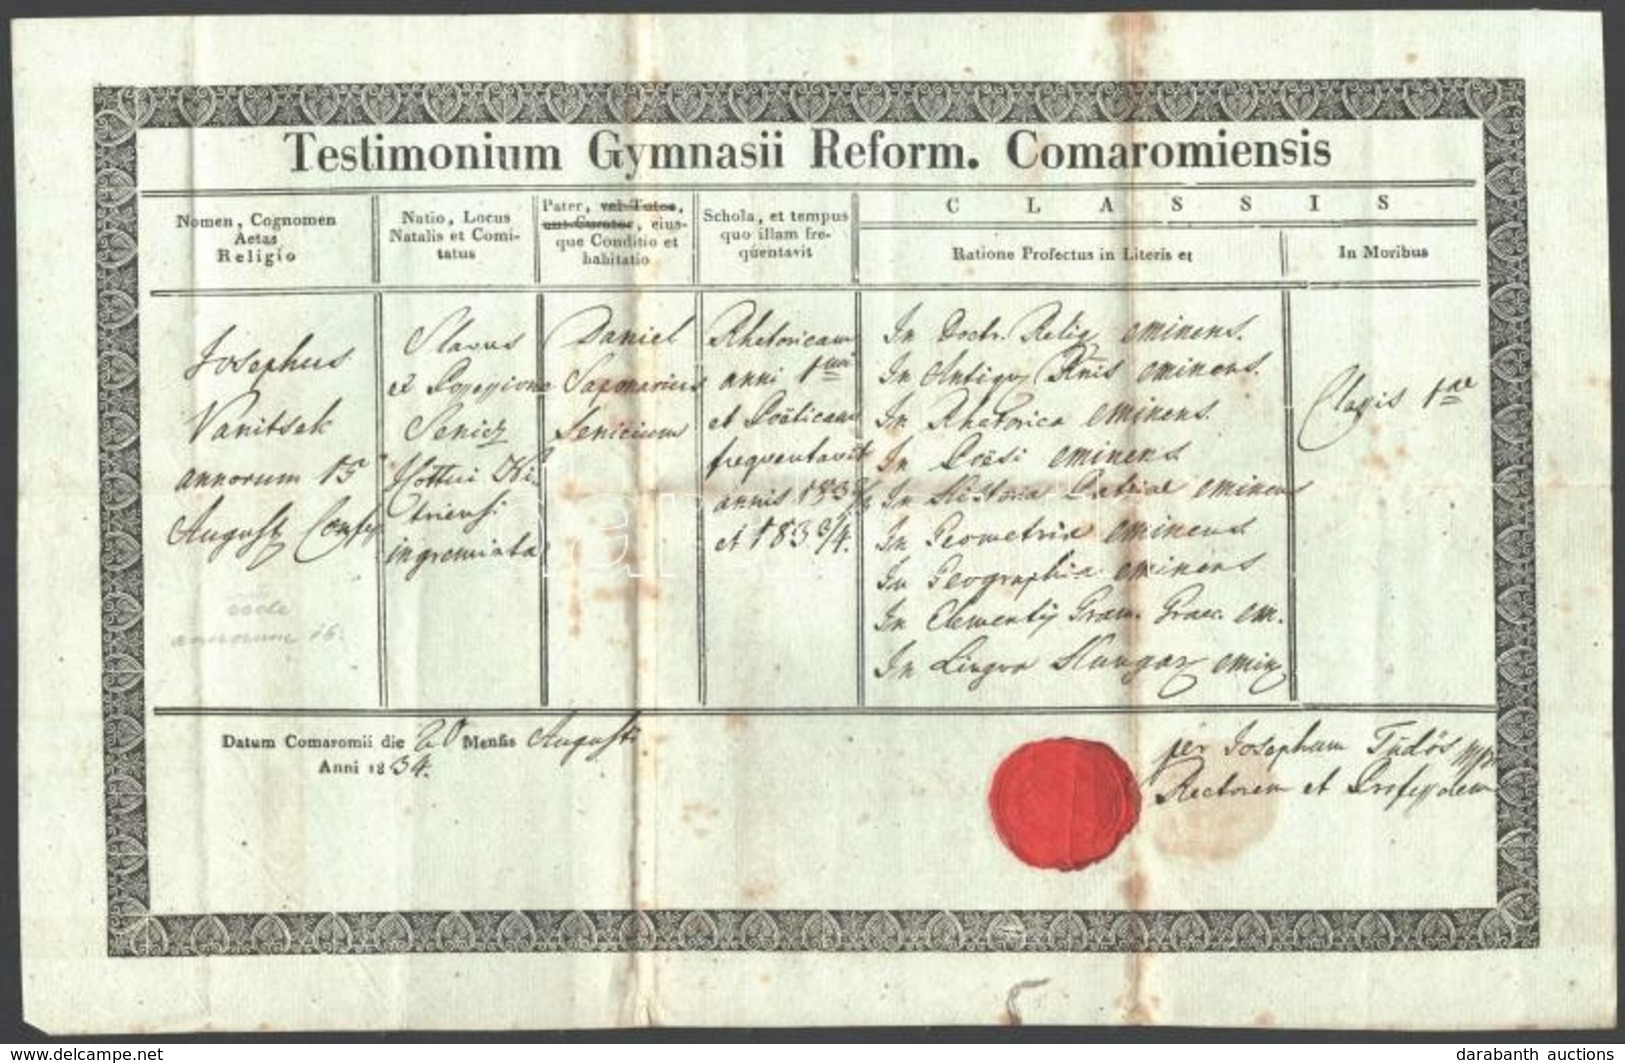 Testimonium Gymnasii Reform. Comaromiensis
Nomen, Cognomen
Aetas
Religio
Natio, Locus
Natalis et Comi-
tatus
Pater, vel Tutor,
aut Curator, eius-
que Conditio et
habitatio
Schola, et tempus
quo illam fre-
qüentavit
C L A S S I S
Ratione Profectus in Literis et
In Moribus
Josephus
Vanitsek
annorum 15
August. Conf.
recte
annorum 16.
Slavus
e Possessione
Senicz
Cottui Ni-
triensi
ingremiata
Daniel
Saponarius
Seniciensis
Rhetoricam
anni 1mi
et Poëticam
freqventavit
annis 183 2/3
et 183 3/4.
In Doctr. Relig eminens.
In Antiqu Rnis eminens.
In Rhetorica eminens.
In Poësi eminens
In Historia Patriae eminens
In Geometria eminens
In Geographia eminens
In Elementis Gram. Graec. em.
In Lingva Hungar emin
Classis 1ae
Datum Comaromii die 20 Mensis Augusti
Anni 1834.
per Josephum Tudós mp
Rectorem et Professorem
www.delcampe.net
darabanth auctions